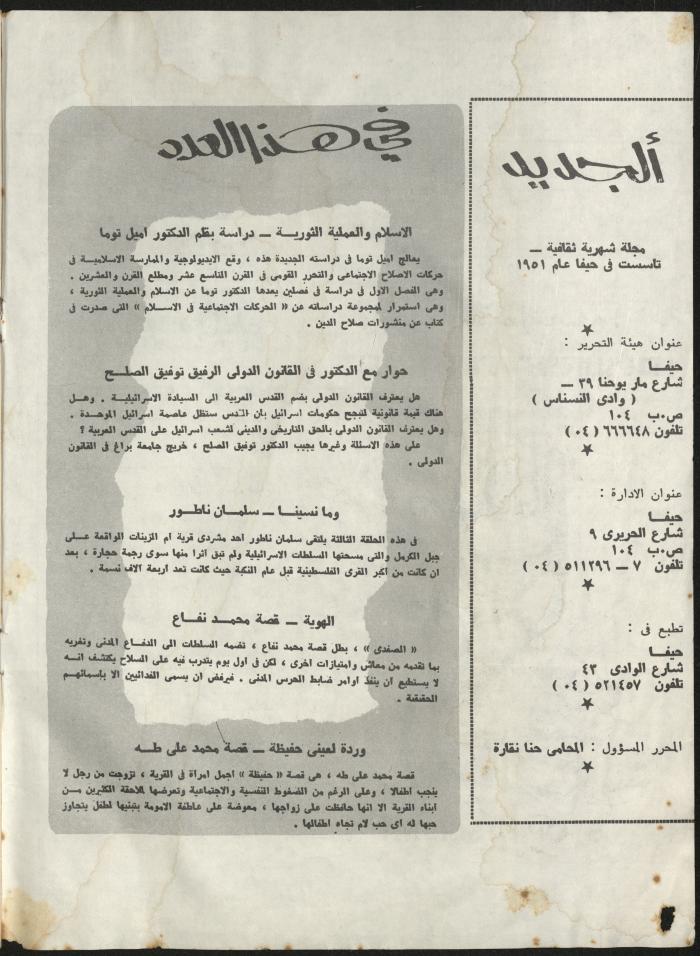 ألجديد
مجلة شهرية ثقافية ــ
تاسست فى حيفا عام ١٩٥١
عنوان هيئة التحرير :
حيفــا
شارع مار يوحنا ٣٩ ــ
( وادى النسناس )
ص.ب ١٠٤
تلفون ٦٦٦٦٤٨ ( ٠٤ )
عنوان الادارة :
حيفــا
شارع الحريرى ٩
ص.ب ١٠٤
تلفون ٧ ــ ٥١١٢٩٦ ( ٠٤ )
تطبع فى :
حيفــا
شارع الوادى ٤٣
تلفون ٥٢١٤٥٧ ( ٠٤ )
المحرر المسؤول : المحامى حنا نقارة
في هذا العدد
الاسلام والعملية الثوريــة ــ دراسة بقلم الدكتور اميل توما
يعالج اميل توما فى دراسته الجديدة هذه ، وقع الايديولوجية والممارسة الاسلاميــة فى
حركات الاصلاح الاجتماعى والتحرر القومى فى القرن التاسع عشر ومطلع القرن والعشرين .
وهى الفصل الاول فى دراسة فى فصلين يعدها الدكتور توما عن الاسلام والعملية الثورية ،
وهى استمرار لمجموعة دراساته عن « الحركات الاجتماعية فى الاســـلام » التى صدرت فى
كتاب عن منشورات صلاح الدين .
حوار مع الدكتور فى القانون الدولى الرفيق توفيق الصلــح
هل يعترف القانون الدولى بضم القدس العربية الى السيادة الاسرائيليـة . وهــل
هناك قيمة قانونية لتبجح حكومات اسرائيل بان القدس ستظل عاصمة اسرائيل الموحــدة .
وهل يعترف القانون الدولى بالحق التاريخى والدينى لشعب اسرائيل على القدس العربية ؟
على هذه الاسئلة وغيرها يجيب الدكتور توفيق الصلح ، خريج جامعة براغ فى القانون
الدولى .
وما نسينــا ــ سلمان ناطور
فى هذه الحلقة الثالثة يلتقى سلمان ناطور احد مشردى قرية ام الزينات الواقعة علــى
جبل الكرمل والتى مسحتها السلطات الاسرائيلية ولم تبق اثرا منها سوى رجمة حجارة ، بعد
ان كانت من اكبر القرى الفلسطينية قبل عام النكبة حيث كانت تعد اربعة الاف نسمة .
الهوية ــ قصة محمــد نفاع
« الصفدى » ، بطل قصة محمد نفاع ، تضمه السلطات الى الدفــاع المدنى وتغريه
بما تقدمه من معاش وامتيازات اخرى ، لكن فى اول يوم يتدرب فيه على السلاح يكتشف انــه
لا يستطيع ان ينفذ اوامر ضابط الحرس المدنى . فيرفض ان يسمى الفدائيين الا باسمائهــم
الحقيقية .
وردة لعينى حفيظة ــ قصة محمد على طــه
قصة محمد على طه ، هى قصة « حفيظة » اجمل امرأة فى القرية ، تزوجت من رجل لا
ينجب اطفالا ، وعلى الرغم من الضغوط النفسية والاجتماعية وتعرضها لملاحقة الكثيرين مــن
ابناء القرية الا انها حافظت على زواجها ، معوضة على عاطفة الامومة بتبنيها لطفل يتجاوز
حبها له اى حب لام تجاه اطفالها .